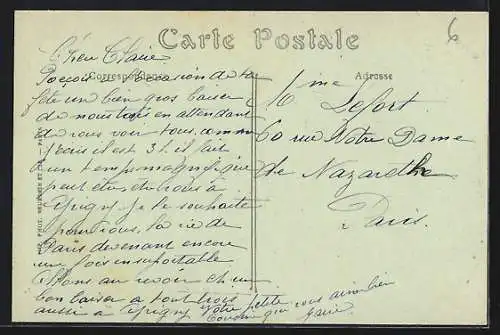 Carte Postale
6
Correspondance
Adresse
Chère Claire
Reçois à l'occasion de ta
fête un bien gros baiser
de nous tous en attendant
de vous voir tous, comm
il est 3h. il fait
un temps magnifique
peut être, de vous à
Epigny je le souhaite
pour vous, la vie de
Paris devenant encore
une fois insuportable
Allons au revoir et un
bon baiser à tout trois
aussi à Epigny Votre petite
Cousine qui vous aime bien
Mme Lefort
60 rue Notre Dame
de Nazareth
Paris.
PHOT. NEURDEIN ET CIE. - PARIS